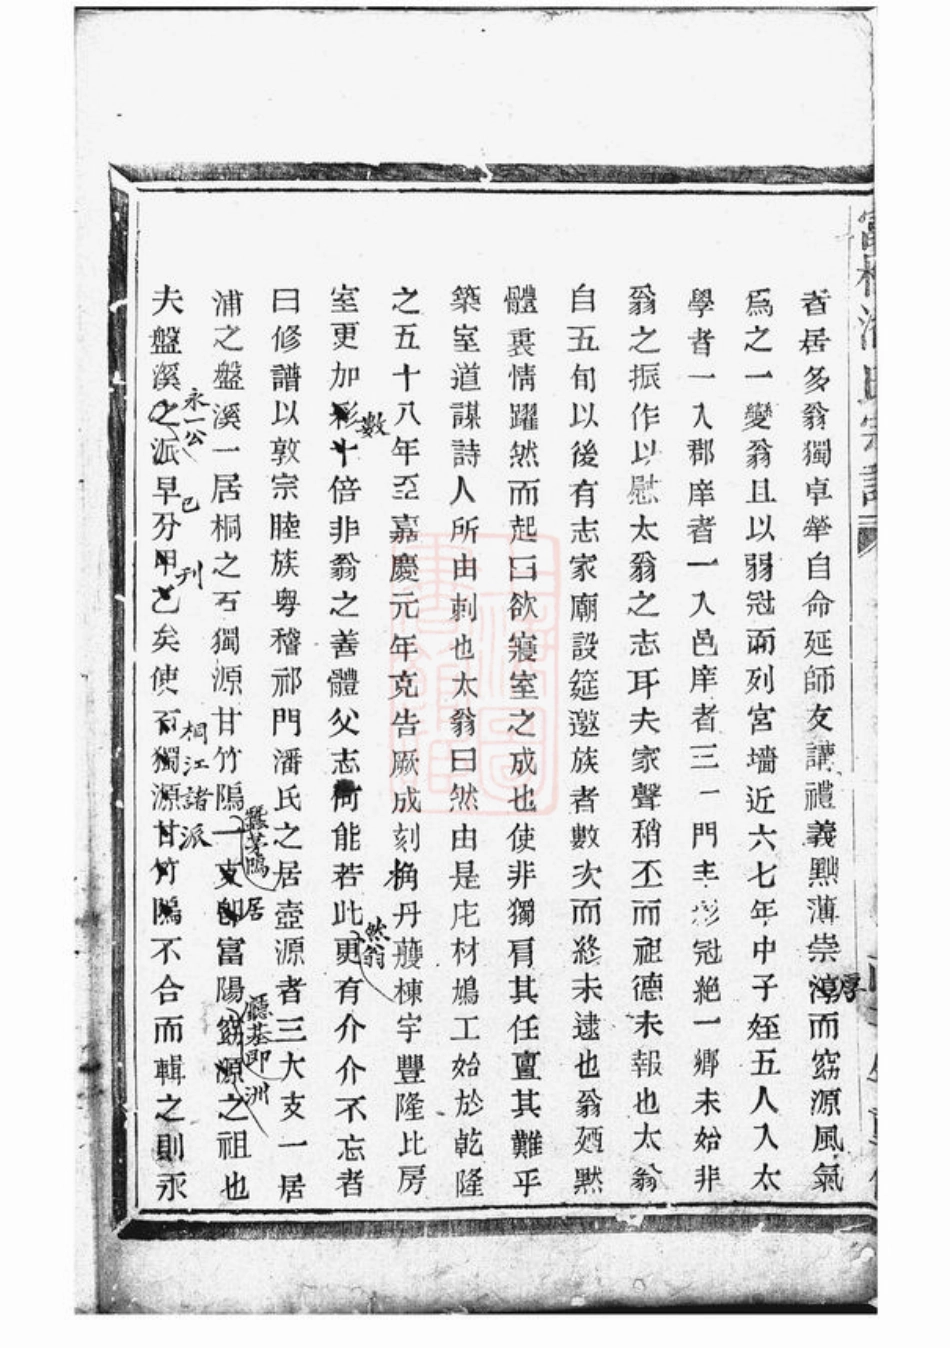 者居多翁獨卓犖自命延師友講禮義黜薄崇淳而窈源風氣
厚
爲之一變翁且以弱冠而列宮墻近六七年中子姪五人入太
學者一入郡庠者一入邑庠者三一門丰彩冠絶一鄉未始非
翁之振作以慰太翁之志耳夫家聲稍丕而祖德未報也太翁
自五旬以後有志家廟設筵邀族者數次而終未逮也翁廼默
體裏情躍然而起曰欲寢室之成也使非獨肩其任亶其難乎
築室道謀詩人所由刺也太翁曰然由是庀材鳩工始於乾隆
之五十八年至嘉慶元年克告厥成刻桷丹雘棟宇豐隆比房
室更加彩十倍非翁之善體父志何能若此更有介介不忘者
數
然翁
曰修譜以敦宗睦族粤稽祁門潘氏之居壺源者三大支一居
浦之盤溪一居桐之石獨源甘竹隝一支卽富陽窈源之祖也
茅隝
居
基即
洲
夫盤溪之派早分甲乙矣使石獨源甘竹隝不合而輯之則永
永一公
已
刊
桐江諸派